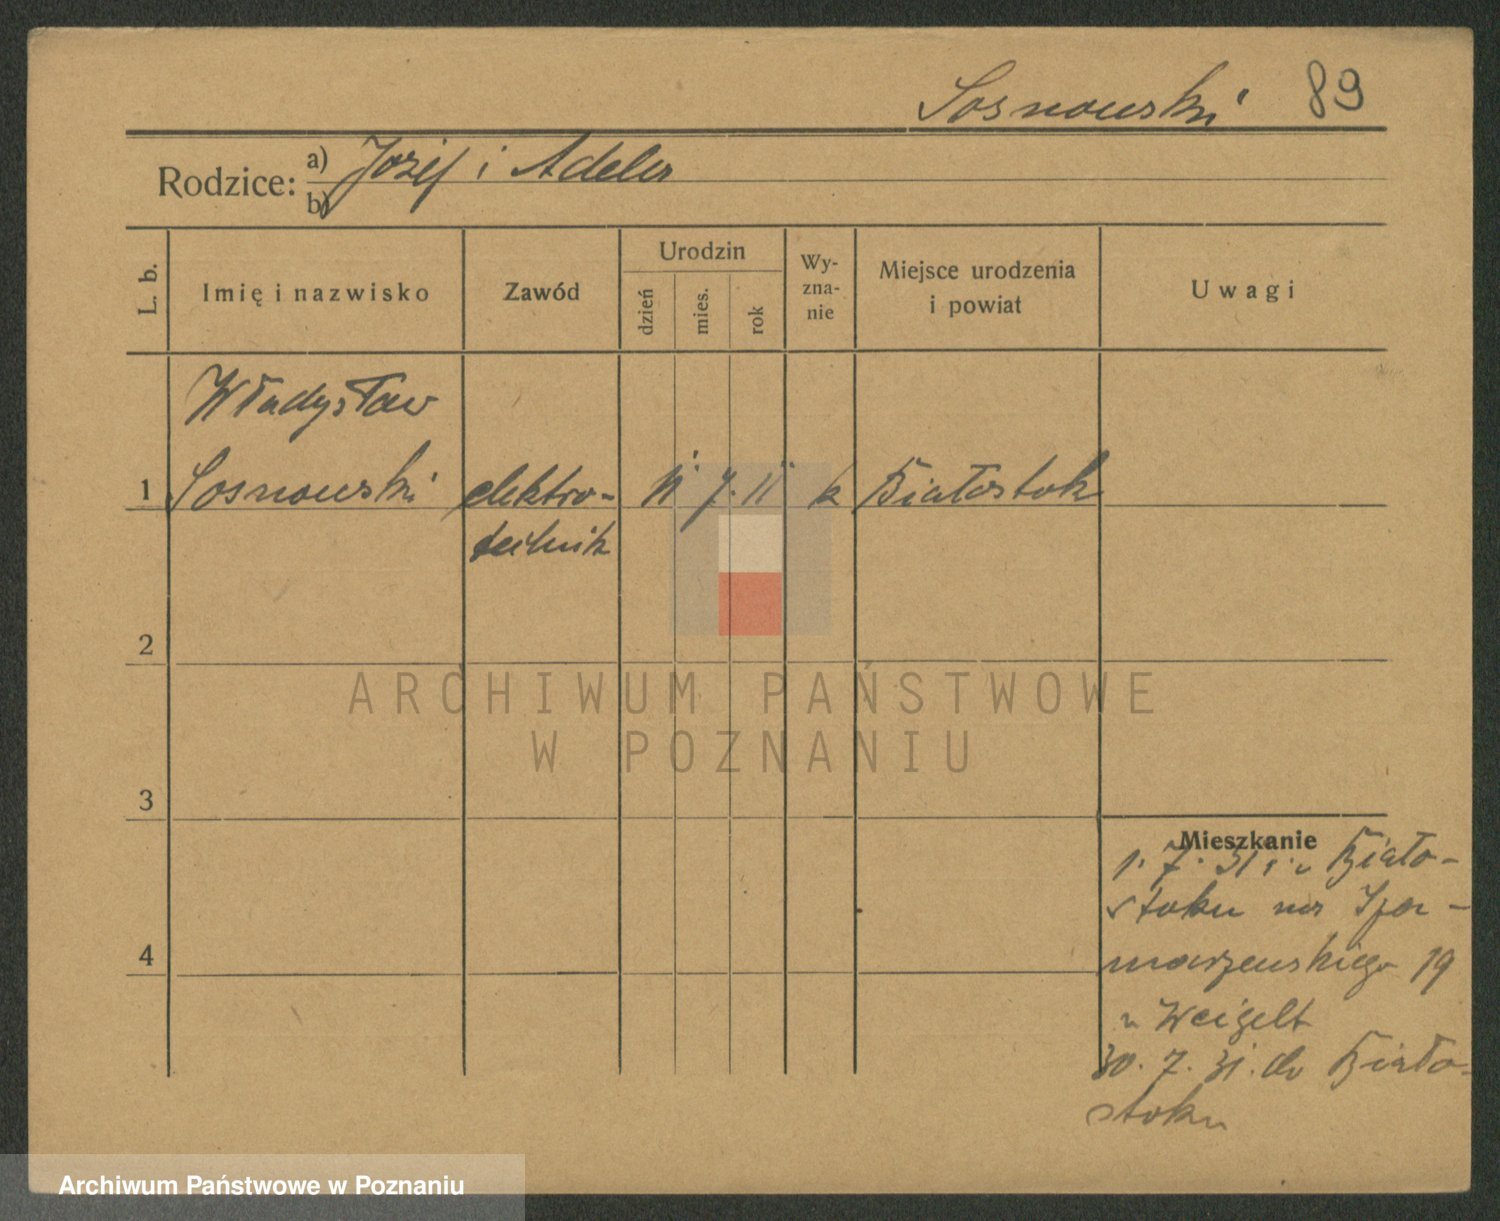 Sosnowski 89
Rodzice: a) Józef i Adela
b)
L. b.
Imię i nazwisko
Zawód
Urodzin
dzień
mies.
rok
Wy-
zna-
nie
Miejsce urodzenia
i powiat
Uwagi
Władysław
1 Sosnowski elektro- 7. 11 k Białostok
technik
2
3
4
Mieszkanie
1. 7. 31 Biało-
stoku na
19
u Weigelt
30. 7. 31. do Biało-
stoku
ARCHIWUM PAŃSTWOWE
W POZNANIU
Archiwum Państwowe w Poznaniu